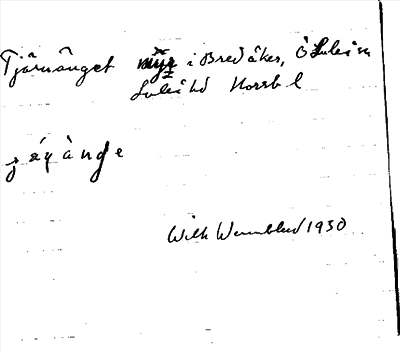 Tjärnånget myr i Bredåker, Ö Luleå sn
Luleå hd Norrb l
Will Wennblad 1930